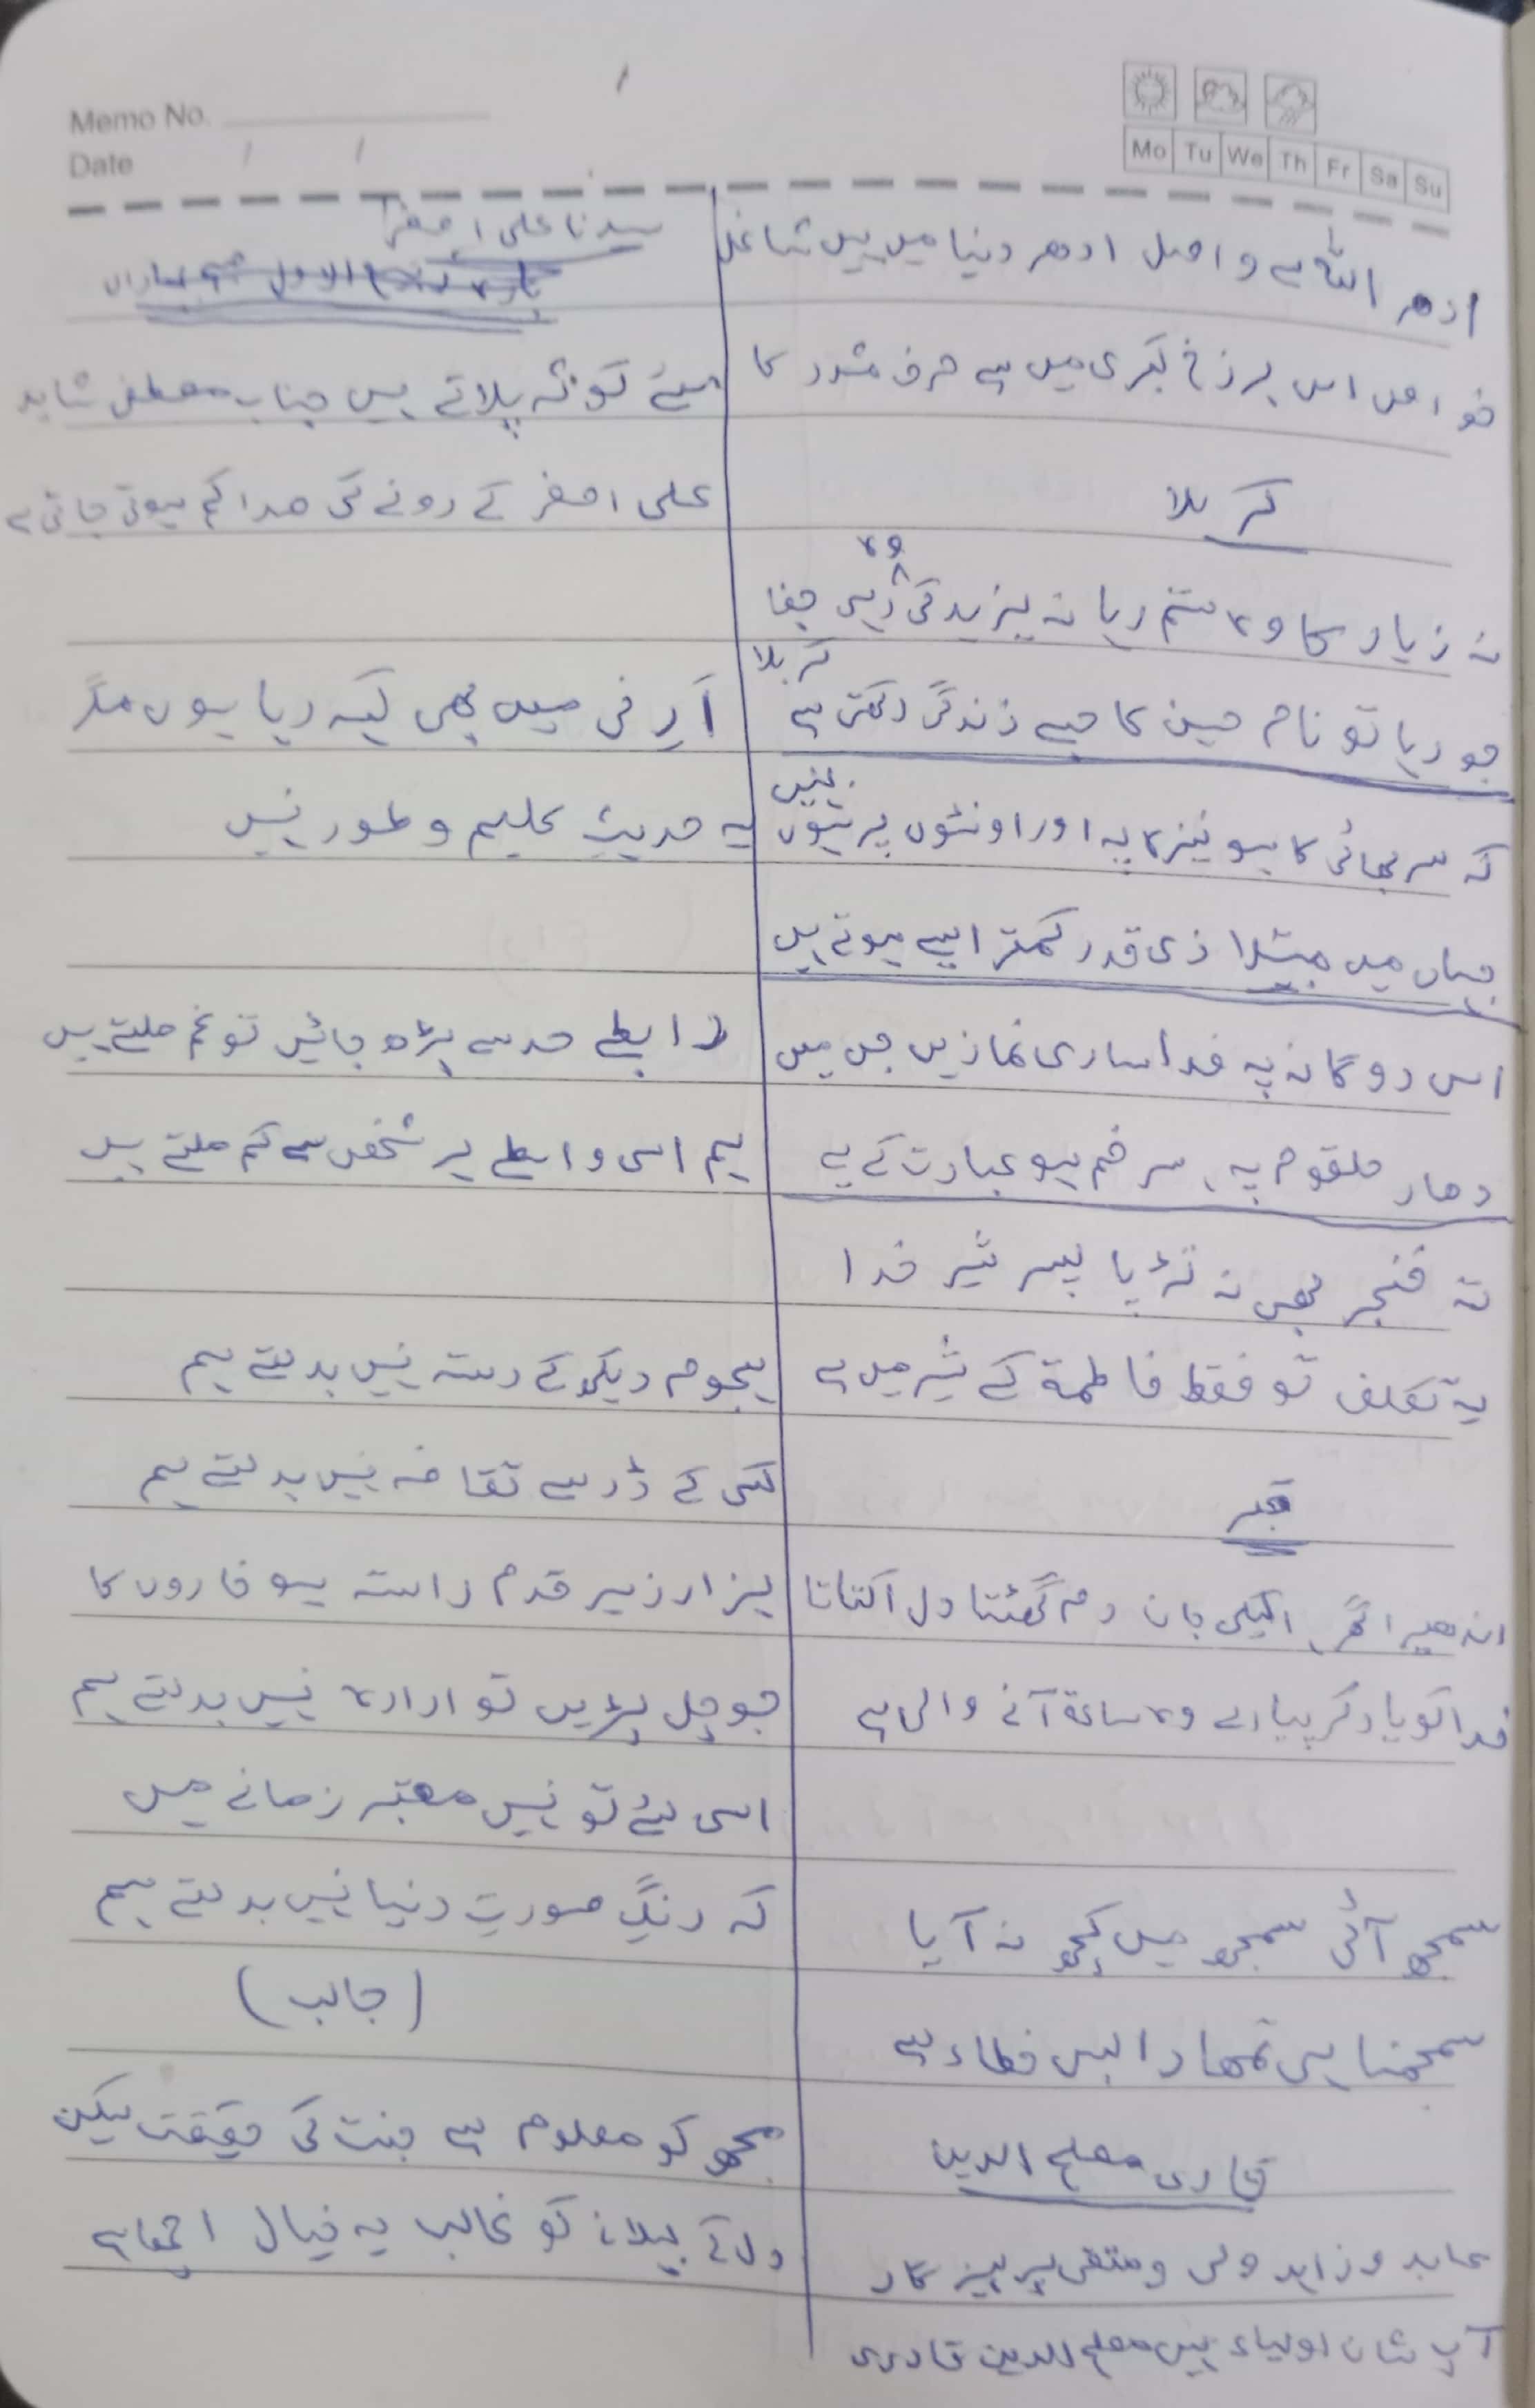 Memo No.
Date / /
Mo Tu We Th Fr Sa Su
ادھر اللہ سے واصل ادھر دنیا میں ہیں شاغل
خواص اس برزخ کبریٰ میں ہے حرف مشدد کا
کربلا
نہ زیاد کا وہ ستم رہا نہ یزید کی وہ رہی جفا
جو رہا تو نام حسین کا جسے زندگی رکھتی ہے کربلا
کہ سر بھائی کا ہو نیزہ پہ اور اونٹوں پر بہنیں ہوں
جہاں میں مبتلا ذی قدر کمتر ایسے ہوتے ہیں
اس دوگانہ پہ فدا ساری نمازیں جس میں
دھار حلقوم پہ، سر خم ہو عبادت کے لیے
تہ خنجر بھی نہ تڑپا پسر شیر خدا
یہ تکلف تو فقط فاطمہ کے شیر میں ہے
قبر
اندھیرا گھر، اکیلی جان دم گھٹتا دل اکتاتا
خدا کو یاد کر پیارے وہ ساعت آنے والی ہے
سمجھ آئی سمجھ میں کچھ نہ آیا
سمجھنا ہی تمھارا بس خطاء ہے
قاری مصلح الدین
عابد و زاہد ولی و متقی پرہیز گار
آپ شان اولیاء ہیں مصلح الدین قادری
سیدنا علی اصغر
اسے کوثر پلاتے ہیں جناب مصطفیٰ شاید
علی اصغر کے رونے کی صدا کم ہوتی جاتی ہے
اَرِنی میں بھی کہہ رہا ہوں مگر
یہ حدیثِ کلیم و طور نہیں
رابطے حد سے بڑھ جائیں تو غم ملتے ہیں
ہم اسی واسطے ہر شخص سے کم ملتے ہیں
ہجوم دیکھ کے رستہ نہیں بدلتے ہم
کسی کے ڈر سے تقاضہ نہیں بدلتے ہم
ہزار زیر قدم راستہ ہو خاروں کا
جو چل پڑیں تو ارادہ نہیں بدلتے ہم
اسی لئے تو نہیں معتبر زمانے میں
کہ رنگِ صورتِ دنیا نہیں بدلتے ہم
(جالب)
مجھ کو معلوم ہے جنت کی حقیقت لیکن
دل کے بہلانے کو غالب یہ خیال اچھا ہے